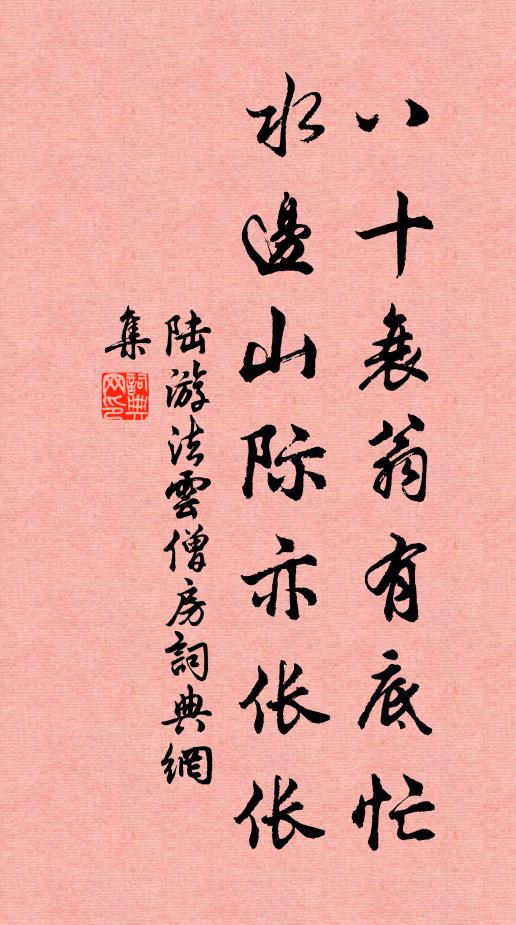 八十衰翁有底忙
水邊山际亦伥伥
陆游法雲僧房詞典網
集
詞典网印